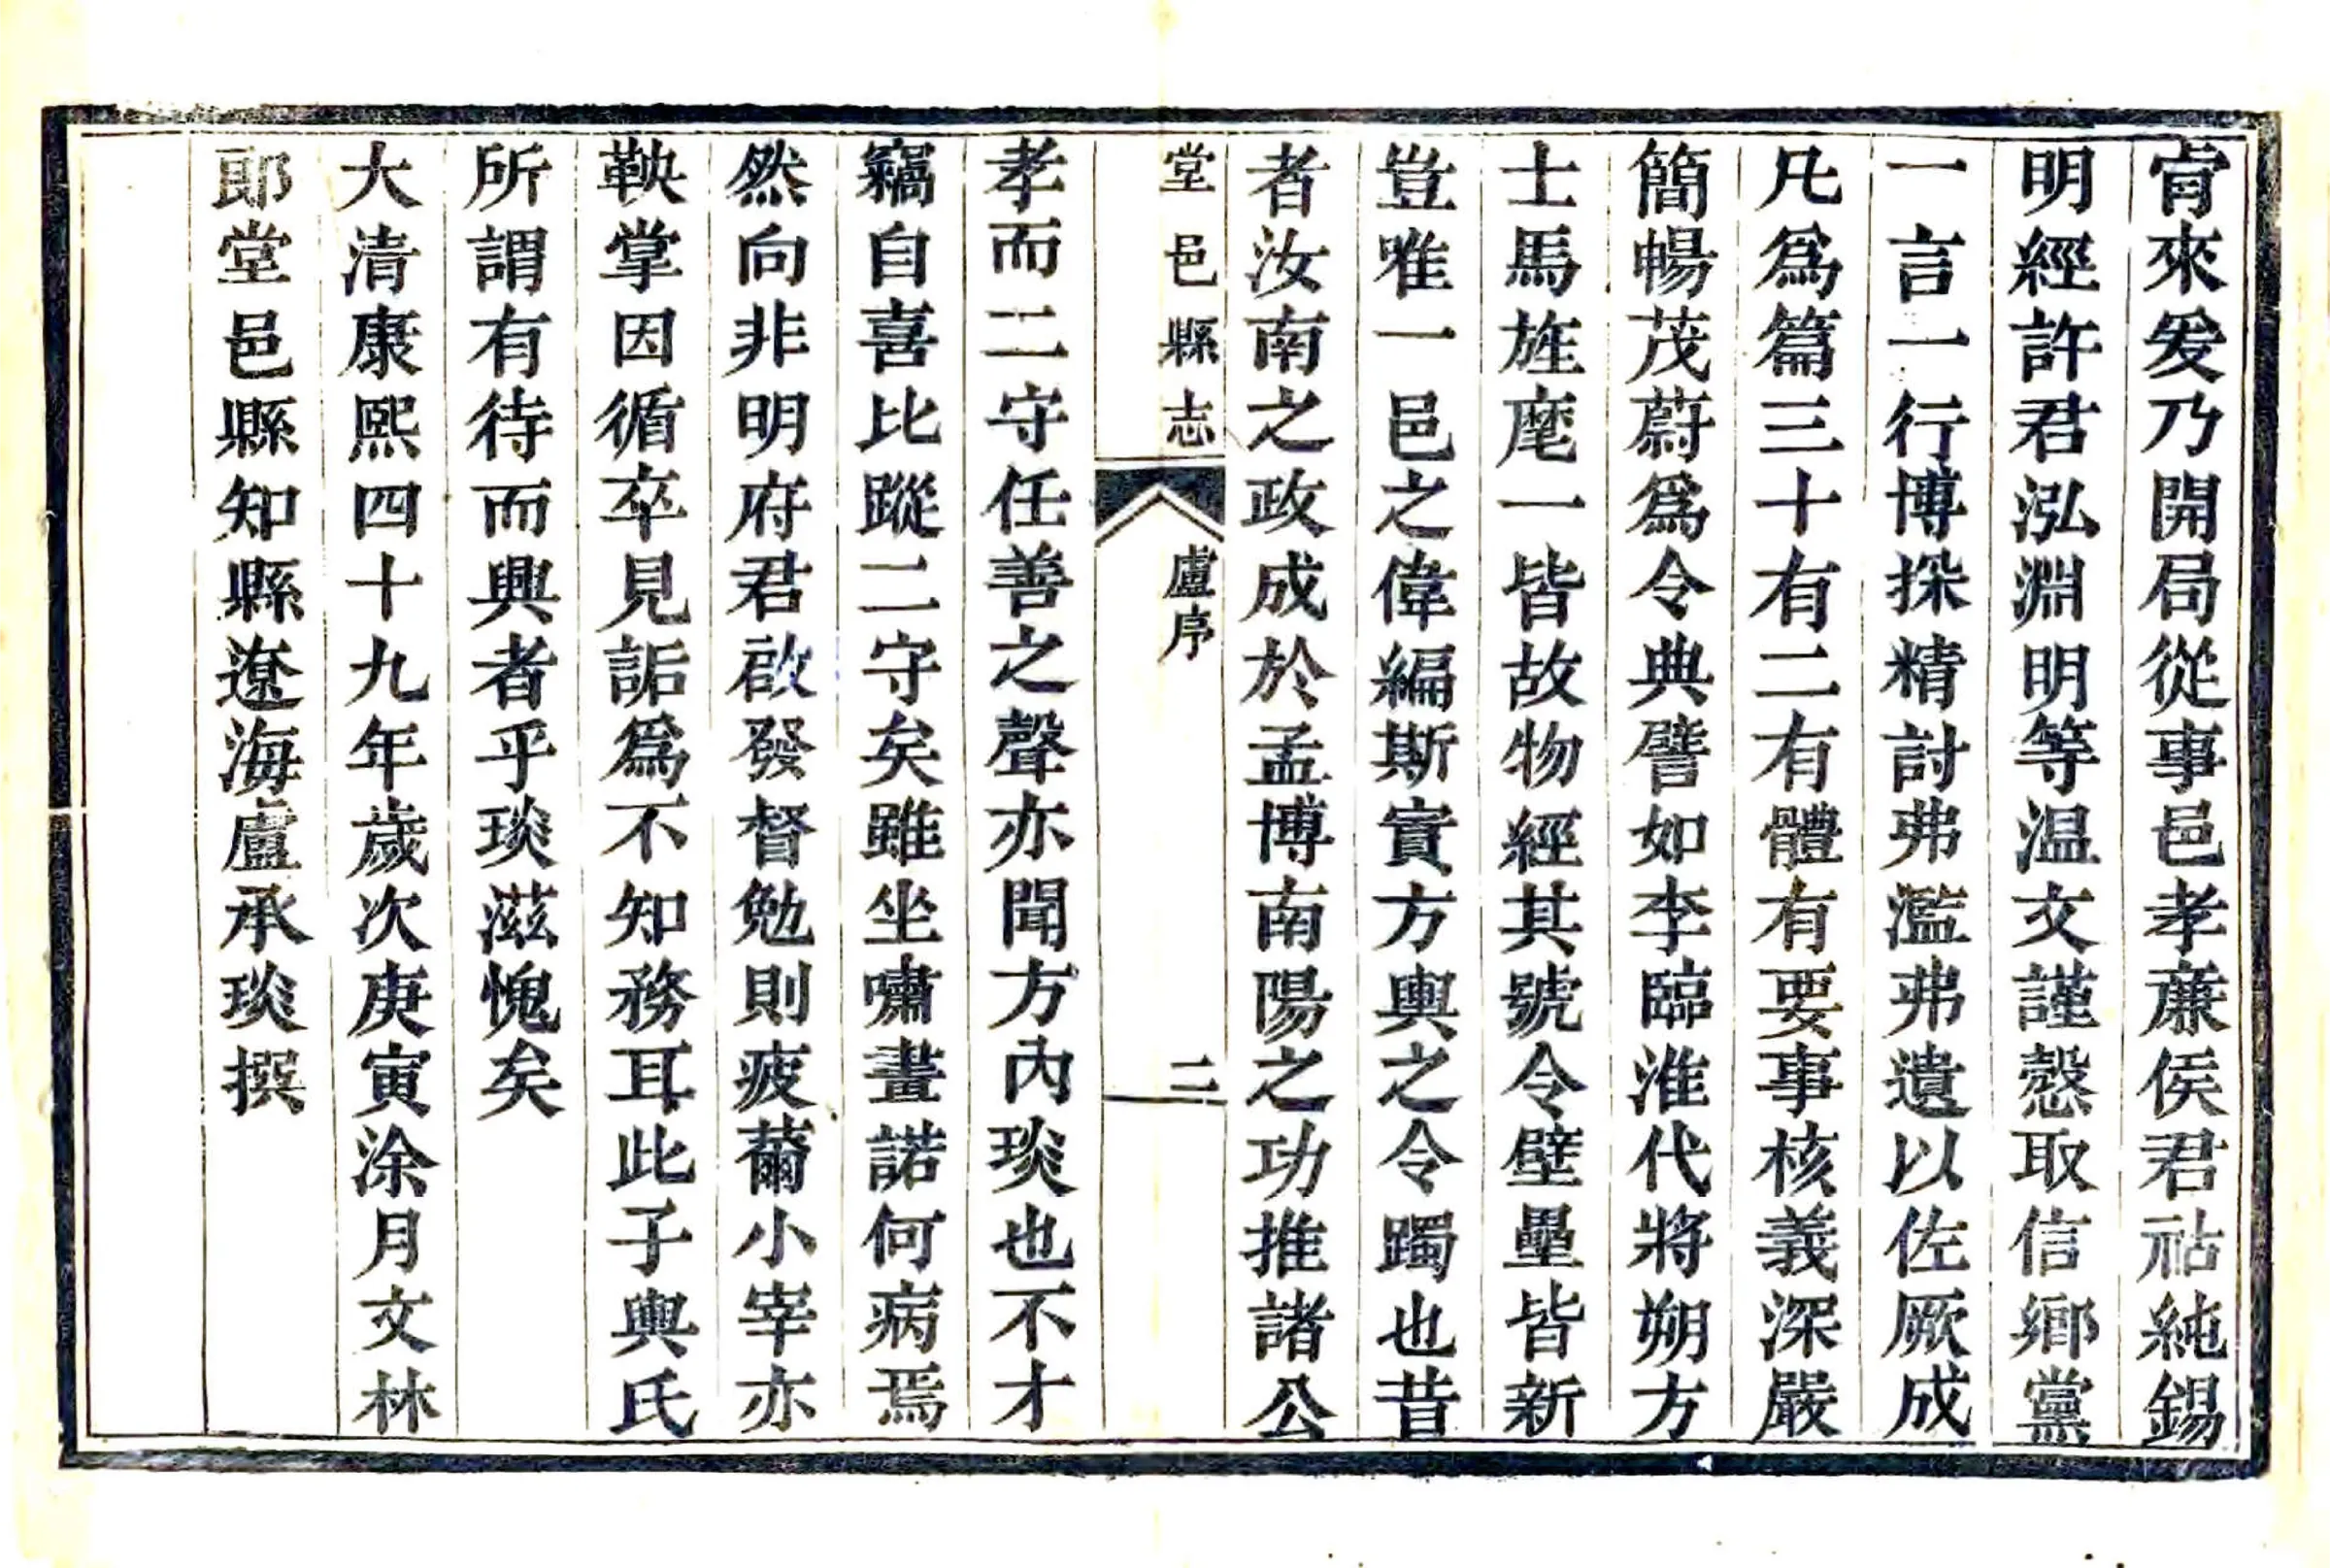 肻來爰乃開局從事邑孝廉侯君祜純錫
明經許君泓淵明等温文謹慤取信鄉黨
一言一行博採精討弗濫弗遺以佐厥成
凡爲篇三十有二有體有要事核義深嚴
簡暢茂蔚爲令典譬如李臨淮代將朔方
士馬旌麾一皆故物經其號令壁壘皆新
豈唯一邑之偉編斯實方輿之令躅也昔
者汝南之政成於孟博南陽之功推諸公
堂邑縣志 盧序 二
孝而二守任善之聲亦聞方內琰也不才
竊自喜比蹤二守矣雖坐嘯畫諾何病焉
然向非明府君啟發督勉則疲薾小宰亦
鞅掌因循卒見詬爲不知務耳此子輿氏
所謂有待而興者乎琰滋愧矣
大清康熙四十九年歲次庚寅涂月文林
郎堂邑縣知縣遼海盧承琰撰